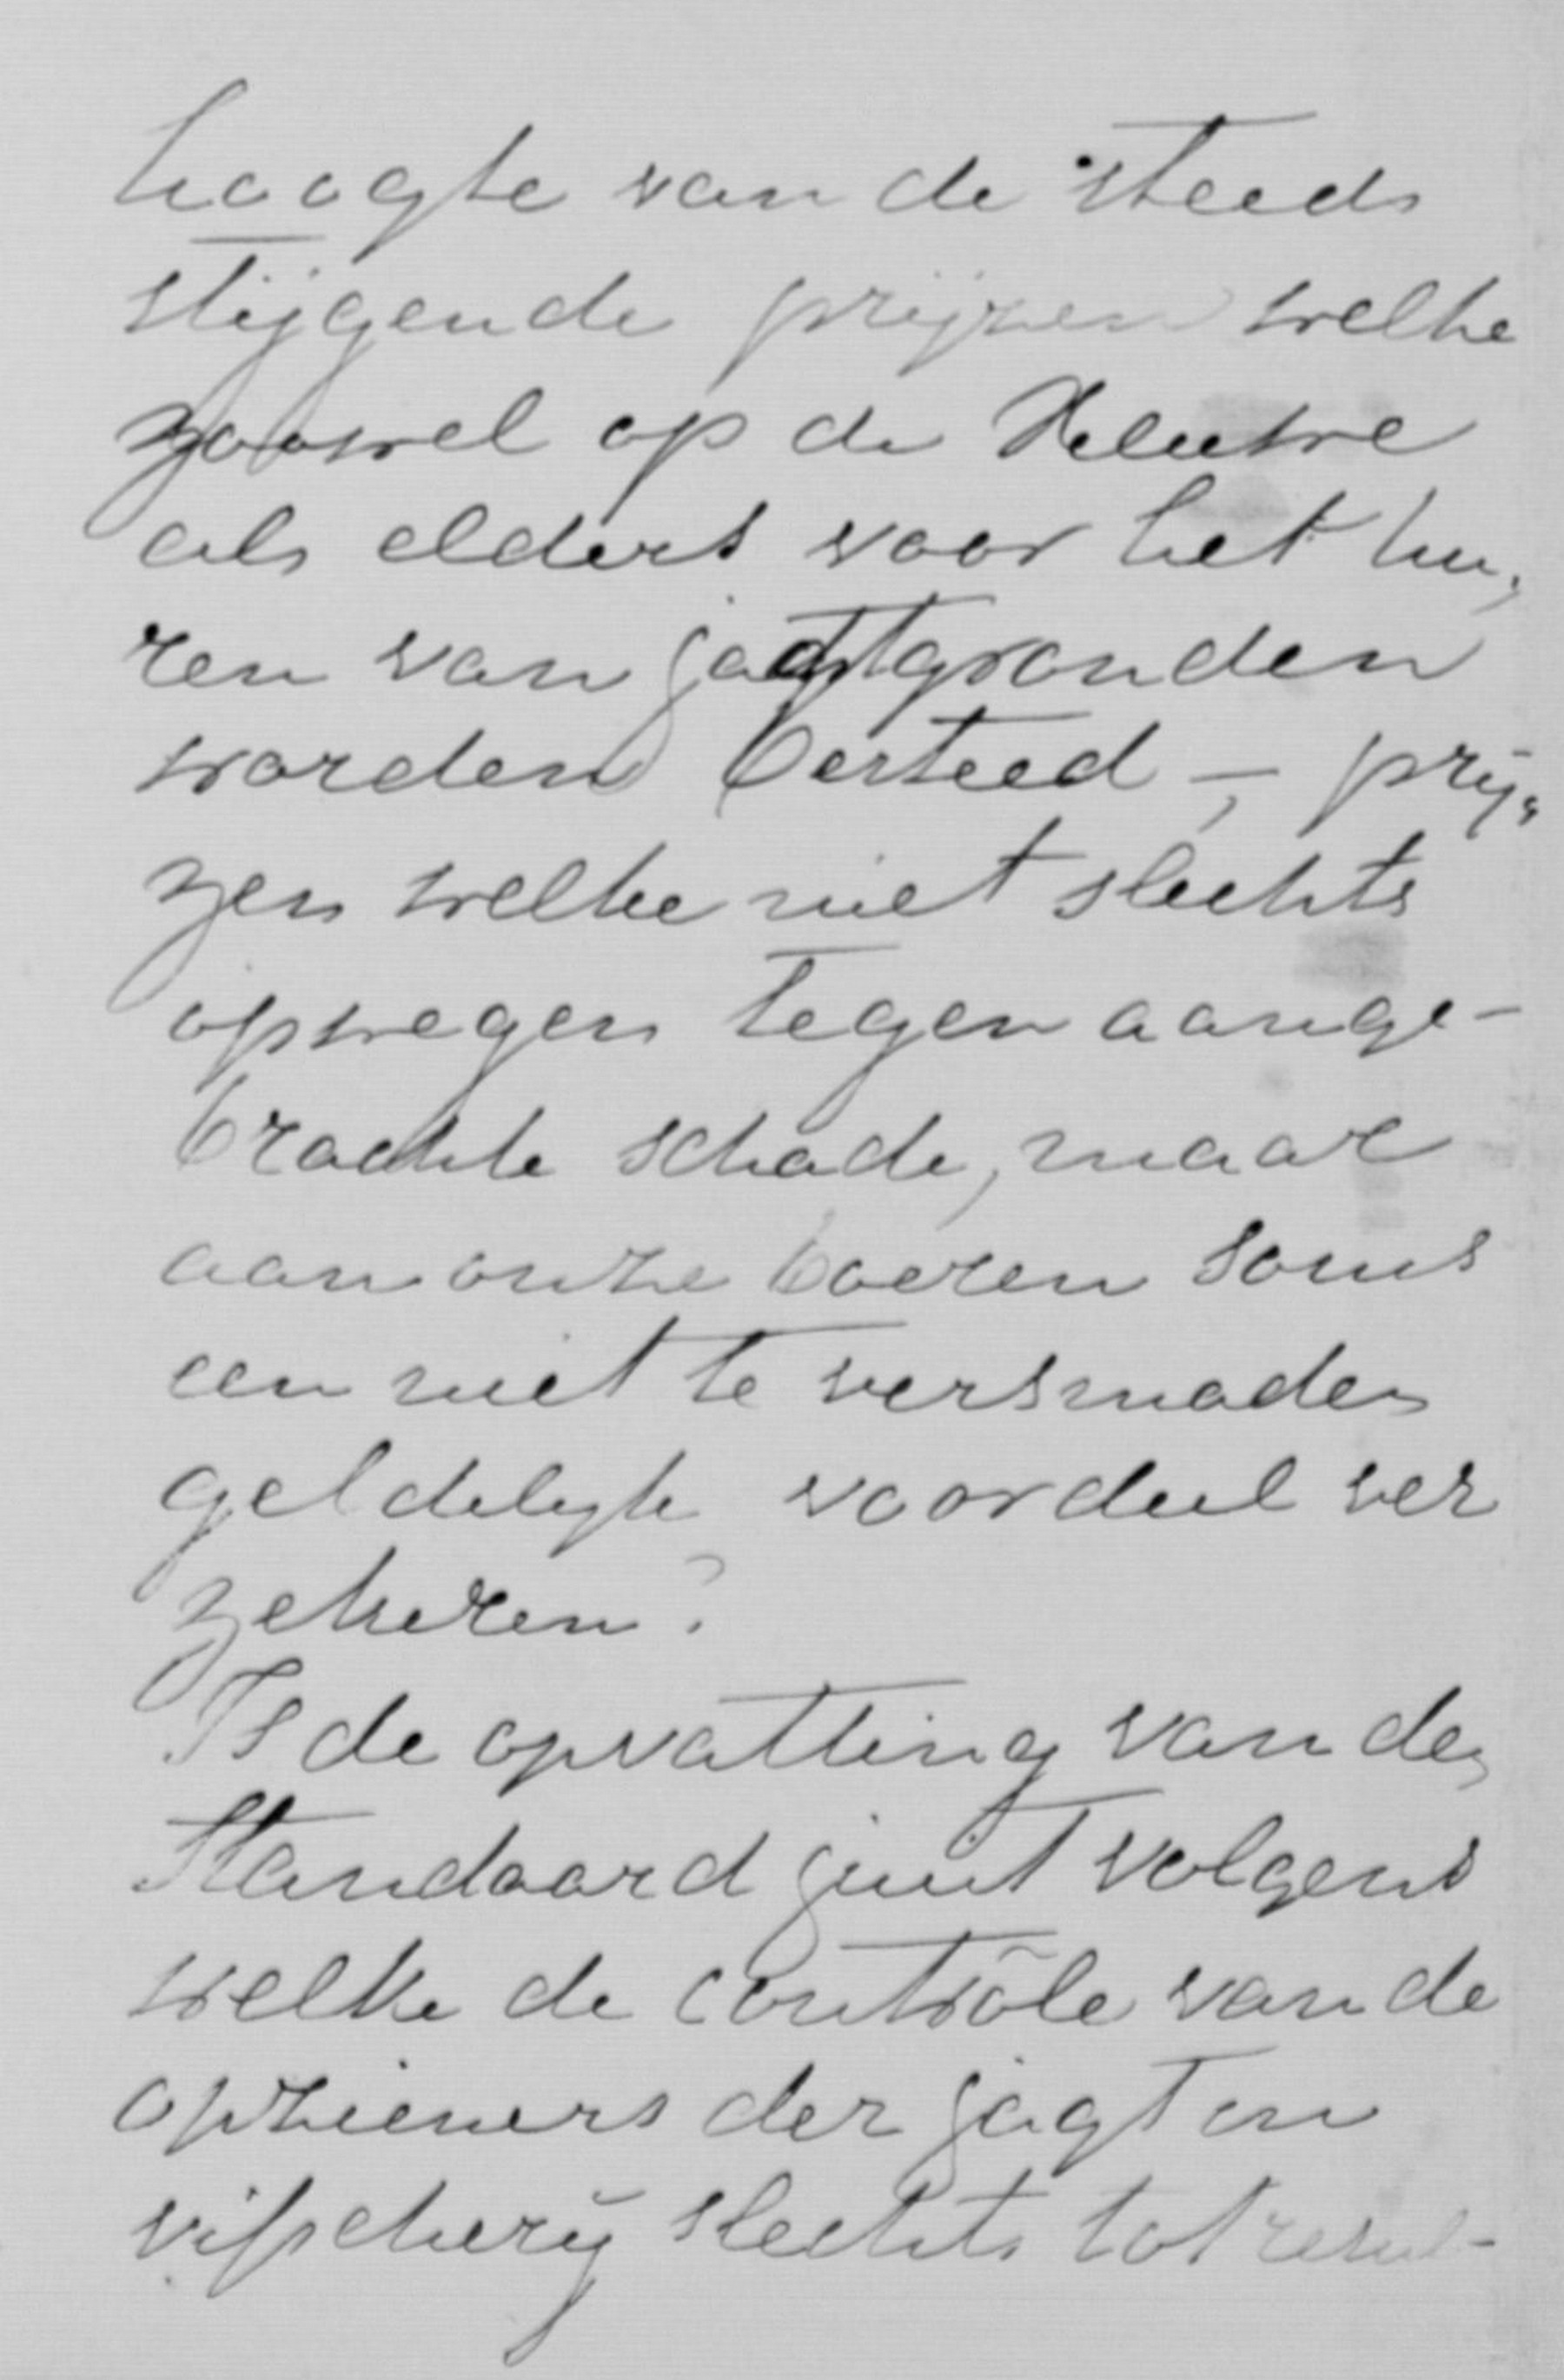 hoogte van de steeds
stijgende prijzen welke
zoowel op de Veluwe
als elders voor het hu,
ren van jagtgronden
worden besteed -, prij„
zen welke niet slechts
opwegen tegen aange-
brachte schade, maar
aan onze boeren soms
een niet te versmaden
geldelijk voordeel ver
zekeren?
Is de opvatting van de
Standaard juist volgens
welke de contrôle van de
opzieners der jagt en
visscherij slechts tot resul-